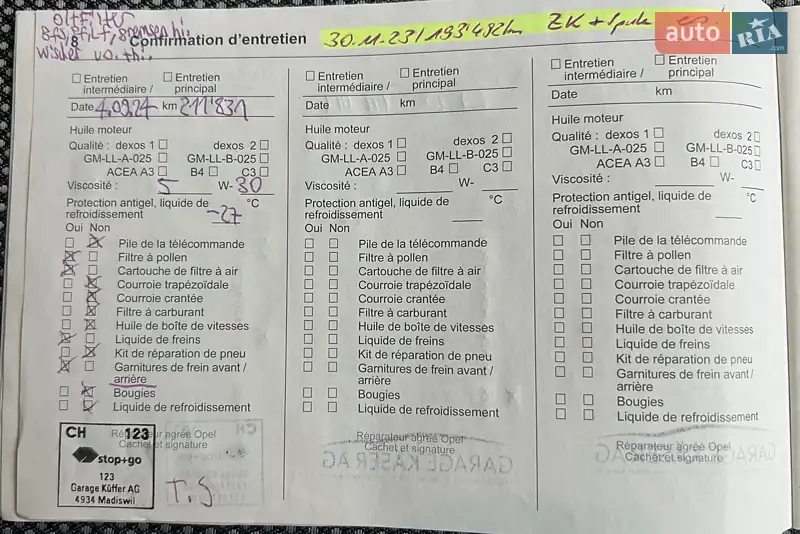 ÖL+Filter
8 Confirmation d'entretien
30.11.23/193'482km ZK + Spule
auto RIA
.com
Entretien intermédiaire /
Entretien principal
Date 4.09.24 km 211'831
Huile moteur
Qualité : dexos 1 dexos 2
GM-LL-A-025 GM-LL-B-025
ACEA A3 B4 C3
Viscosité : 5 W- 30
Protection antigel, liquide de
refroidissement -27 °C
Oui Non
Pile de la télécommande
Filtre à pollen
Cartouche de filtre à air
Courroie trapézoïdale
Courroie crantée
Filtre à carburant
Huile de boîte de vitesses
Liquide de freins
Kit de réparation de pneu
Garnitures de frein avant /
arrière
Bougies
Liquide de refroidissement
Réparateur agréé Opel
Cachet et signature
CH 123
stop+go
123
Garage Küffer AG
4934 Madiswil
T.S
Entretien intermédiaire /
Entretien principal
Date km
Huile moteur
Qualité : dexos 1 dexos 2
GM-LL-A-025 GM-LL-B-025
ACEA A3 B4 C3
Viscosité : W-
Protection antigel, liquide de
refroidissement °C
Oui Non
Pile de la télécommande
Filtre à pollen
Cartouche de filtre à air
Courroie trapézoïdale
Courroie crantée
Filtre à carburant
Huile de boîte de vitesses
Liquide de freins
Kit de réparation de pneu
Garnitures de frein avant /
arrière
Bougies
Liquide de refroidissement
Réparateur agréé Opel
Cachet et signature
GARAGE KÄSER AG
Entretien intermédiaire /
Entretien principal
Date km
Huile moteur
Qualité : dexos 1 dexos 2
GM-LL-A-025 GM-LL-B-025
ACEA A3 B4 C3
Viscosité : W-
Protection antigel, liquide de
refroidissement °C
Oui Non
Pile de la télécommande
Filtre à pollen
Cartouche de filtre à air
Courroie trapézoïdale
Courroie crantée
Filtre à carburant
Huile de boîte de vitesses
Liquide de freins
Kit de réparation de pneu
Garnitures de frein avant /
arrière
Bougies
Liquide de refroidissement
Réparateur agréé Opel
Cachet et signature